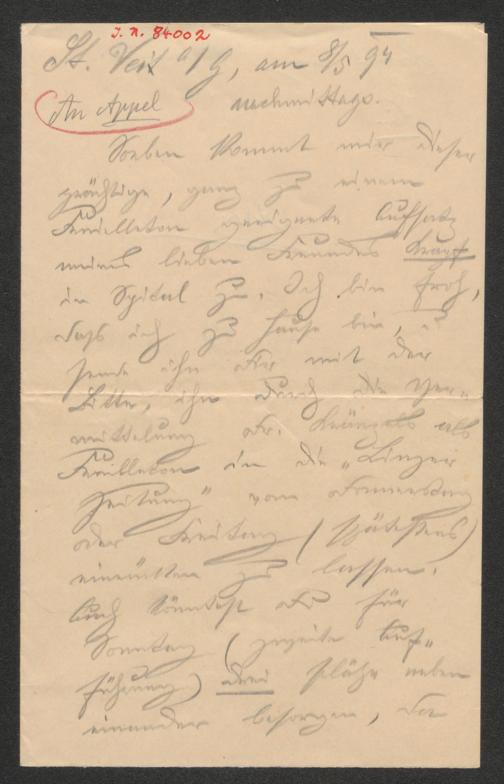 J. N. 84002
St. Veit a/G, am 8/5 94
An Appel
nachmittags.
Soeben kommt mir dieser
prächtige, ganz zu einem
Feuilleton geeignete Aufsatz
meines lieben Freundes Kraft
in Spital zu. Ich bin froh,
dass ich zu Hause bin, u
sende ihn Dir mit der
Bitte, ihn durch die Ver-
mittelung Dr. als
Feuilleton in die „Linzer
Zeitung" vom Donnerstag
oder Freitag (spätestens)
einrücken zu lassen.
Auch könntest Du für
Sonntag (zweite Auf-
führung) drei Plätze neben
einander besorgen, da